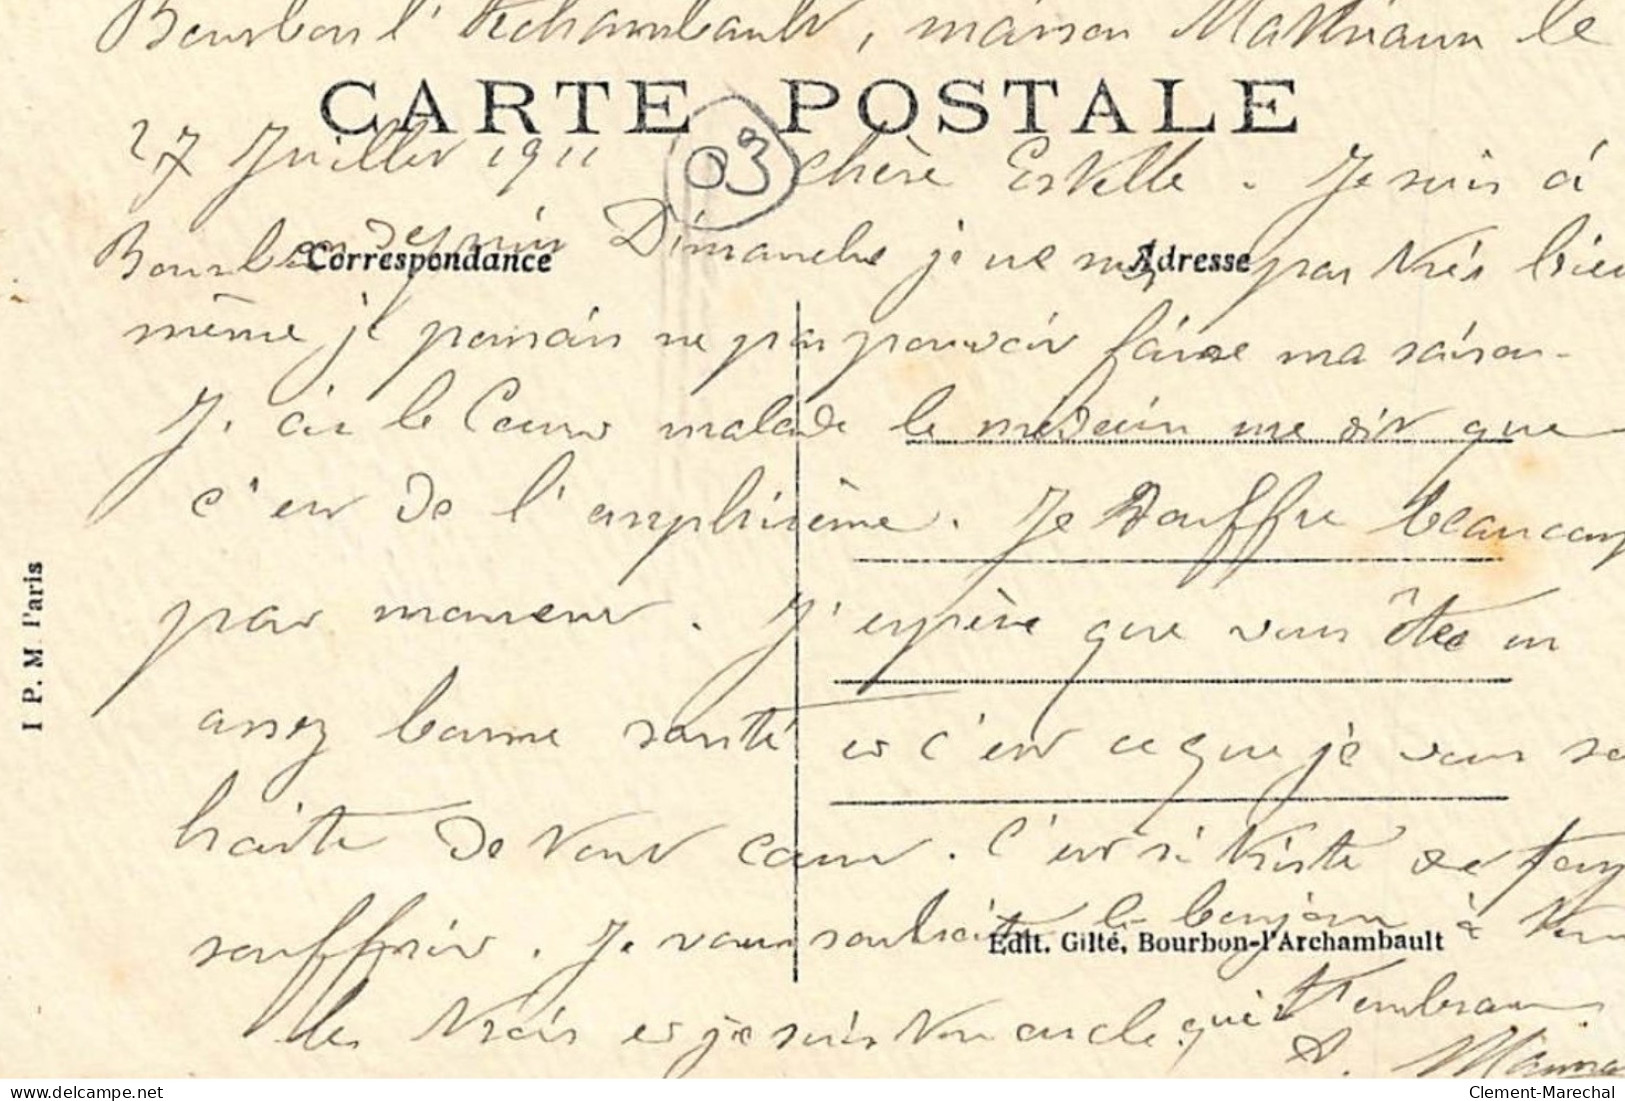 Bourbon l'Archambault, maison Mathiaun le
CARTE POSTALE
27 Juillet 1911 03 Chère Estelle. Je suis à
Bourbon depuis Dimanche je ne suis pas très bien
Correspondance Adresse
même je pensais ne pas pouvoir faire ma saison.
J. ai le Coeur malade le médecin me dit que
c'est de l'amphisème. Je souffre beaucoup
par moment. J'espère que vous êtes en
assez bonne santé et c'est ce que je vous sou
haite de tout coeur. C'est si triste de touj
souffrir. Je vous souhaite le bonjour à tous
Edit. Gilté, Bourbon-l'Archambault
les trois et je suis ton oncle qui t'embrasse
A.
I P. M Paris
Clement-Marechal